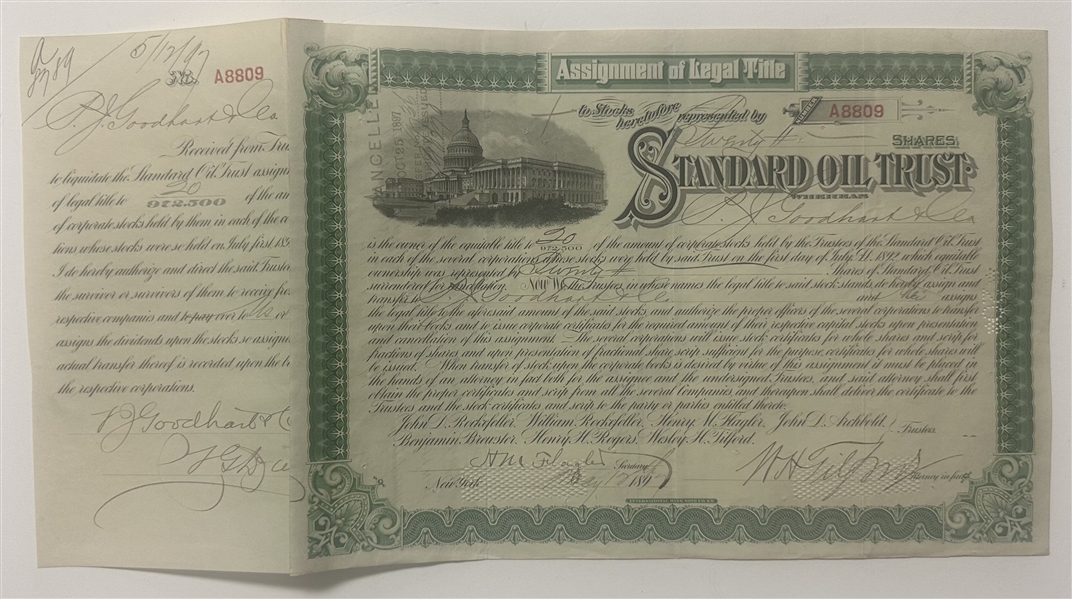 5/12/97
No. A8809
P. J. Goodhart & Co
Received from Trus
to liquidate the Standard Oil Trust assign
of legal title to 20/972,500 of the am
of corporate stocks held by them in each of the co
tions whose stocks were so held on July first 189
I do hereby authorize and direct the said Truste
the survivor or survivors of them to receive fro
respective companies and to pay over to us or
assigns the dividends upon the stocks so assign
actual transfer thereof is recorded upon the b
the respective corporations.
P J Goodhart & C
Assignment of Legal Title
to Stocks heretofore represented by
A8809
Twenty
SHARES
STANDARD OIL TRUST
WHEREAS
P. J. Goodhart & Co
is the owner of the equitable title to 20/972,500 of the amount of corporate stocks held by the Trustees of the Standard Oil Trust
in each of the several corporations whose stocks were held by said Trust on the first day of July A. 1892 which equitable
ownership was represented by Twenty Shares of Standard Oil Trust
surrendered for cancellation. NOW WE the Trustees, in whose names the legal title to said stock stands, do hereby assign and
transfer to P. J. Goodhart & Co and assigns
the legal title to the aforesaid amount of the said stocks, and authorize the proper officers of the several corporations to transfer
upon their books and to issue corporate certificates for the required amount of their respective capital stocks upon presentation
and cancellation of this assignment. The several corporations will issue stock certificates for whole shares and scrip for
fractions of shares and upon presentation of fractional share scrip sufficient for the purpose, certificates for whole shares will
be issued. When transfer of stock upon the corporate books is desired by virtue of this assignment it must be placed in
the hands of an attorney in fact both for the assignee and the undersigned Trustees, and said attorney shall first
obtain the proper certificates and scrip from all the several Companies and thereupon shall deliver the certificate to the
Trustees and the stock certificates and scrip to the party or parties entitled thereto.
John D. Rockefeller, William Rockefeller, Henry M. Flagler, John D. Archbold,
Benjamin Brewster, Henry H. Rogers, Wesley H. Tilford. Trustees.
H M Flagler Secretary W H Tilford Attorney in fact
New York May 12 1897
CANCELLED
OCT 19 1897